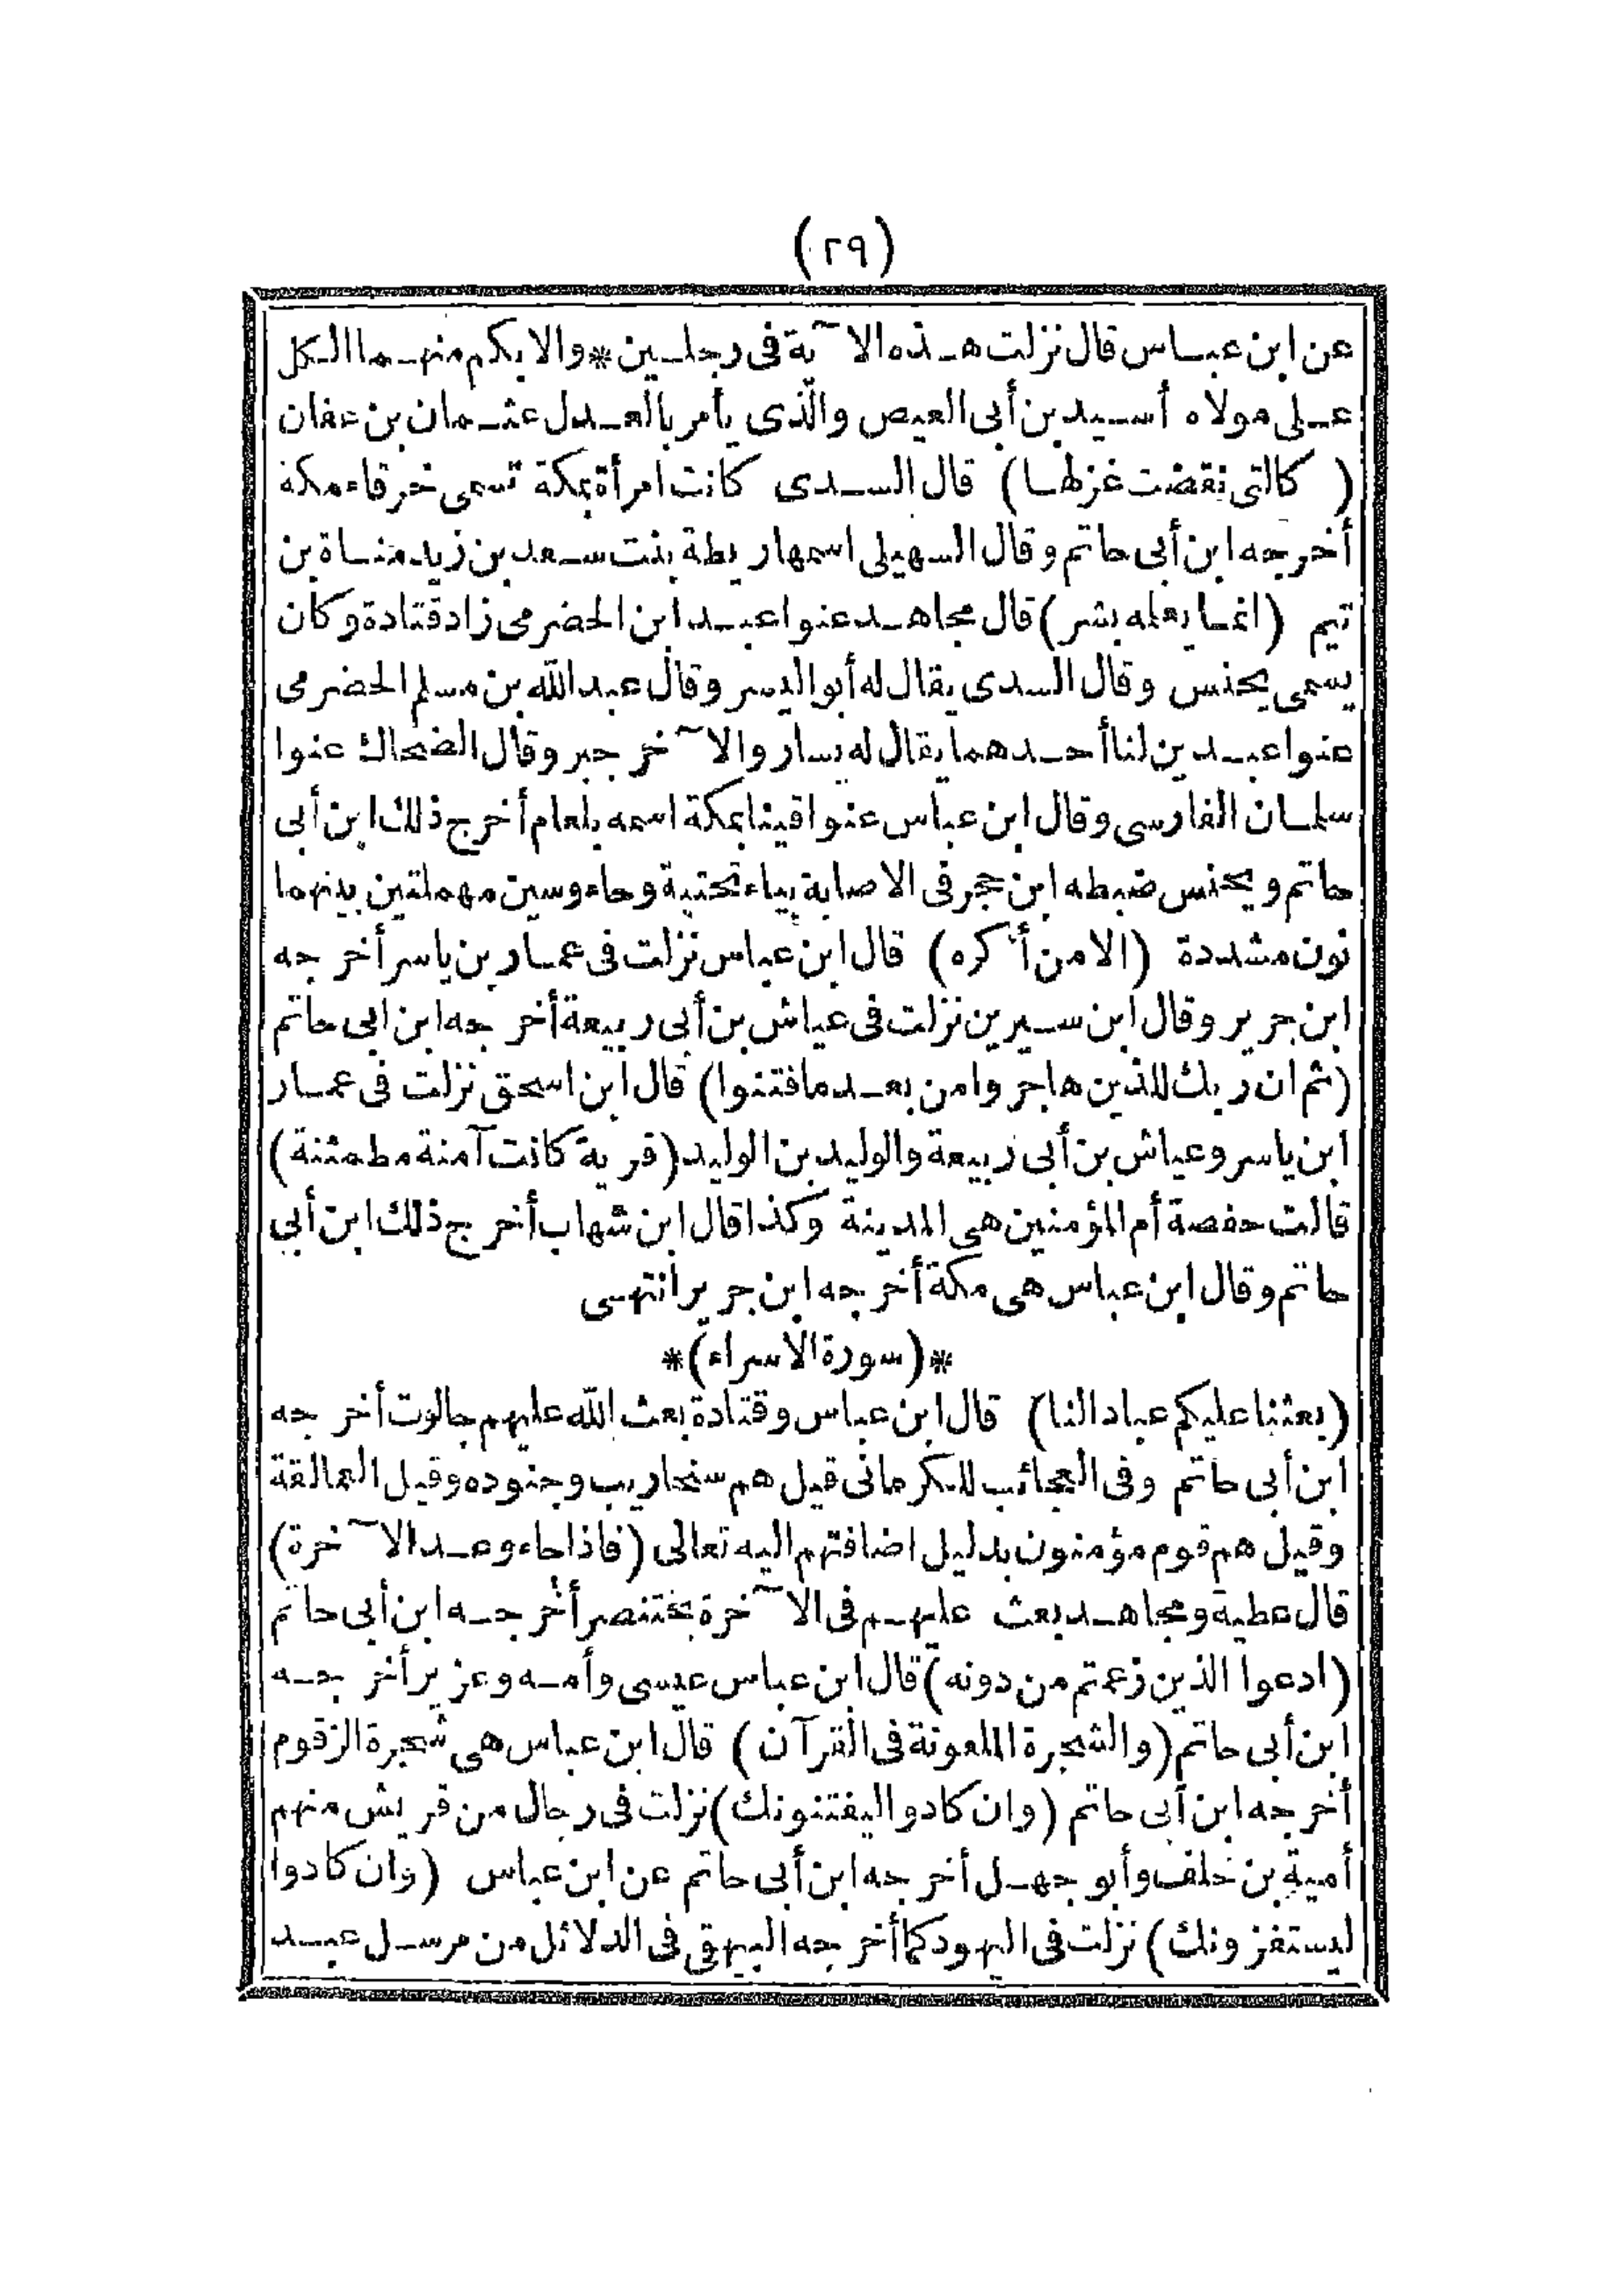 (٢٩)
عن ابن عباس قال نزلت هذه الآية فى رجلين * والابكم منهما الكل
على مولاه أسيد بن أبى العيص والذى يأمر بالعدل عثمان بن عفان
(كالتى نقضت غزلها) قال السدى كانت امرأة بمكة تسمى خرقاء مكة
أخرجه ابن أبى حاتم وقال السهيلى اسمها ريطة بنت سعد بن زيد مناة بن
تيم (انما يعلمه بشر) قال مجاهد عنوا عبد ابن الحضرمى زاد قتادة وكان
يسمى يحنس وقال السدى يقال له أبو اليسر وقال عبد الله بن مسلم الحضرمى
عنوا عبدين لنا أحدهما يقال له يسار والآخر جبر وقال الضحاك عنوا
سلمان الفارسى وقال ابن عباس عنوا قينا بمكة اسمه بلعام أخرج ذلك ابن أبى
حاتم ويحنس ضبطه ابن حجر فى الاصابة بياء تحتية وحاء وسين مهملتين بينهما
نون مشددة (الا من أكره) قال ابن عباس نزلت فى عمار بن ياسر أخرجه
ابن جرير وقال ابن سيرين نزلت فى عياش بن أبى ربيعة أخرجه ابن ابى حاتم
(ثم ان ربك للذين هاجروا من بعد مافتنوا) قال ابن اسحق نزلت فى عمار
ابن ياسر وعياش بن أبى ربيعة والوليد بن الوليد (قرية كانت آمنة مطمئنة)
قالت حفصة أم المؤمنين هى المدينة وكذا قال ابن شهاب أخرج ذلك ابن أبي
حاتم وقال ابن عباس هى مكة أخرجه ابن جرير انتهى
*(سورة الاسراء)*
(بعثنا عليكم عبادا لنا) قال ابن عباس وقتادة بعث الله عليهم جالوت أخرجه
ابن أبى حاتم وفى العجائب للكرمانى قيل هم سنحاريب وجنوده وقيل العمالقة
وقيل هم قوم مؤمنون بدليل اضافتهم اليه تعالى (فاذا جاء وعد الآخرة)
قال عطية ومجاهد بعث عليهم فى الآخرة بختنصر أخرجه ابن أبى حاتم
(ادعوا الذين زعمتم من دونه) قال ابن عباس عيسى وأمه وعزير أخرجه
ابن أبى حاتم (والشجرة الملعونة فى القرآن) قال ابن عباس هى شجرة الزقوم
أخرجه ابن أبى حاتم (وان كادوا ليفتنونك) نزلت فى رجال من قريش منهم
أمية بن خلف وأبو جهل أخرجه ابن أبى حاتم عن ابن عباس (وان كادوا
ليستفزونك) نزلت فى اليهود كما أخرجه البيهقى فى الدلائل من مرسل عبد